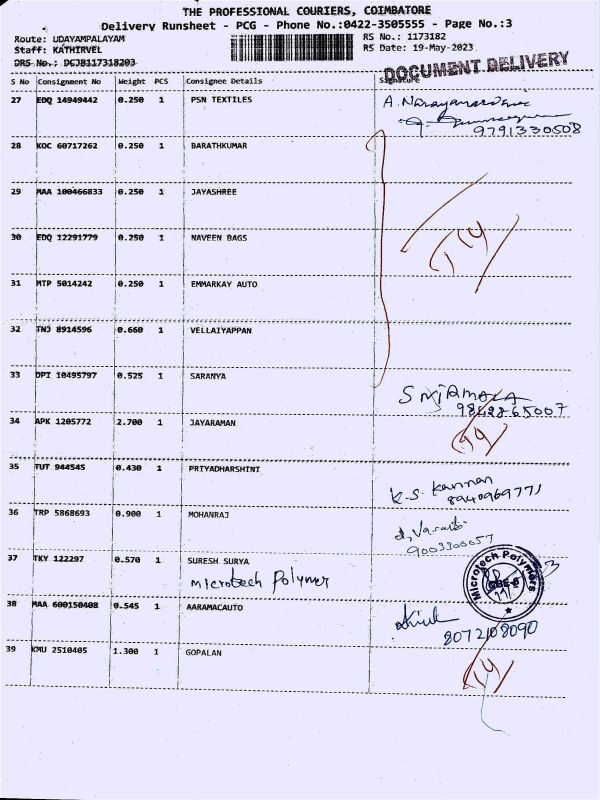 THE PROFESSIONAL COURIERS, COIMBATORE
Delivery Runsheet - PCG - Phone No.:0422-3505555 - Page No.:3
Route: UDAYAMPALAYAM RS No.: 1173182
Staff: KATHIRVEL RS Date: 19-May-2023
DRS No.: DCJB117318203 DOCUMENT DELIVERY
S No Consignment No Weight PCS Consignee Details Signature
27 EDQ 14949442 0.250 1 PSN TEXTILES
9791330508
28 KOC 60717262 0.250 1 BARATHKUMAR
29 MAA 100466833 0.250 1 JAYASHREE
30 EDQ 12291779 0.250 1 NAVEEN BAGS
31 MTP 5014242 0.250 1 EMMARKAY AUTO
32 TNJ 8914596 0.660 1 VELLAIYAPPAN
33 DPT 10495797 0.525 1 SARANYA
34 APK 1205772 2.700 1 JAYARAMAN
35 TUT 944545 0.430 1 PRIYADHARSHINI
K.S. Kannan
8940969771
36 TRP 5868693 0.900 1 MOHANRAJ
37 TKY 122297 0.570 1 SURESH SURYA
Microtech Polymer
Microtech Polymers
38 MAA 600150408 0.545 1 AARAMACAUTO
8072108090
39 KMU 2510405 1.300 1 GOPALAN